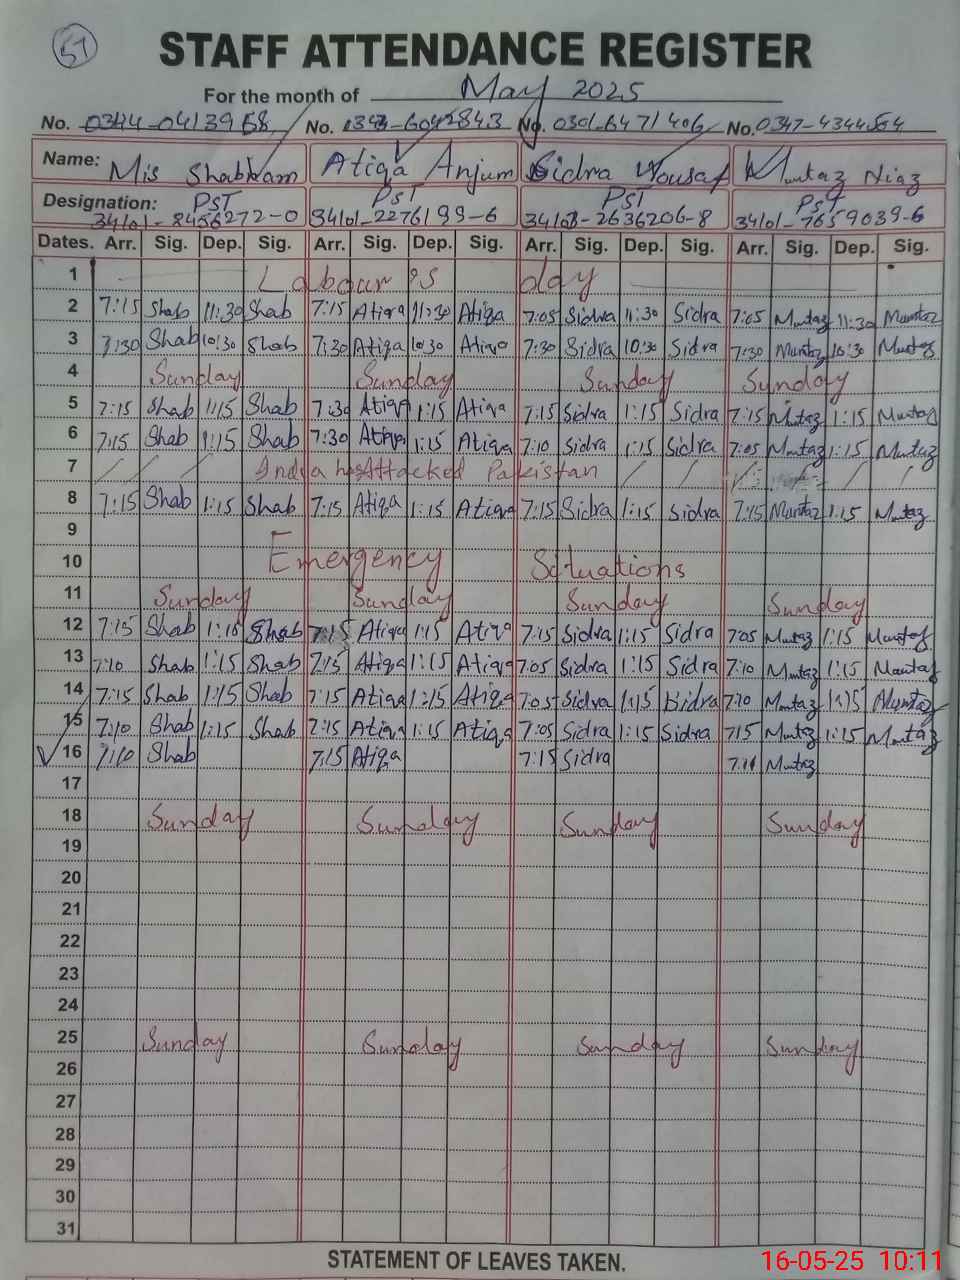 57
STAFF ATTENDANCE REGISTER
For the month of May 2025
No. 0344-0413958 No. 0343-6042843 No. 0301-6471406 No. 0347-4344564
Name: Mis Shabnam Atiqa Anjum Sidra Yousaf Mumtaz Niaz
Designation: PST PST PST PST
34101-8456272-0 34101-2276199-6 34103-2636206-8 34101-7659039-6
Dates. Arr. Sig. Dep. Sig. Arr. Sig. Dep. Sig. Arr. Sig. Dep. Sig. Arr. Sig. Dep. Sig.
1 Labour's day
2 7:15 Shab 11:30 Shab 7:15 Atiqa 11:30 Atiqa 7:05 Sidra 11:30 Sidra 7:05 Mumtaz 11:30 Mumtaz
3 7:30 Shab 10:30 Shab 7:30 Atiqa 10:30 Atiqa 7:30 Sidra 10:30 Sidra 7:30 Mumtaz 10:30 Mumtaz
4 Sunday Sunday Sunday Sunday
5 7:15 Shab 1:15 Shab 7:30 Atiqa 1:15 Atiqa 7:15 Sidra 1:15 Sidra 7:15 Mumtaz 1:15 Mumtaz
6 7:15 Shab 1:15 Shab 7:30 Atiqa 1:15 Atiqa 7:10 Sidra 1:15 Sidra 7:05 Mumtaz 1:15 Mumtaz
7 India has Attacked Pakistan
8 7:15 Shab 1:15 Shab 7:15 Atiqa 1:15 Atiqa 7:15 Sidra 1:15 Sidra 7:15 Mumtaz 1:15 Mumtaz
9
10 Emergency Situations
11 Sunday Sunday Sunday Sunday
12 7:15 Shab 1:15 Shab 7:15 Atiqa 1:15 Atiqa 7:15 Sidra 1:15 Sidra 7:05 Mumtaz 1:15 Mumtaz
13 7:10 Shab 1:15 Shab 7:15 Atiqa 1:15 Atiqa 7:05 Sidra 1:15 Sidra 7:10 Mumtaz 1:15 Mumtaz
14 7:15 Shab 1:15 Shab 7:15 Atiqa 1:15 Atiqa 7:05 Sidra 1:15 Sidra 7:10 Mumtaz 1:15 Mumtaz
15 7:10 Shab 1:15 Shab 7:15 Atiqa 1:15 Atiqa 7:05 Sidra 1:15 Sidra 7:15 Mumtaz 1:15 Mumtaz
16 7:10 Shab 7:15 Atiqa 7:15 Sidra Mumtaz
17
18 Sunday Sunday Sunday Sunday
19
20
21
22
23
24
25 Sunday Sunday Sunday Sunday
26
27
28
29
30
31
STATEMENT OF LEAVES TAKEN.
16-05-25 10:11